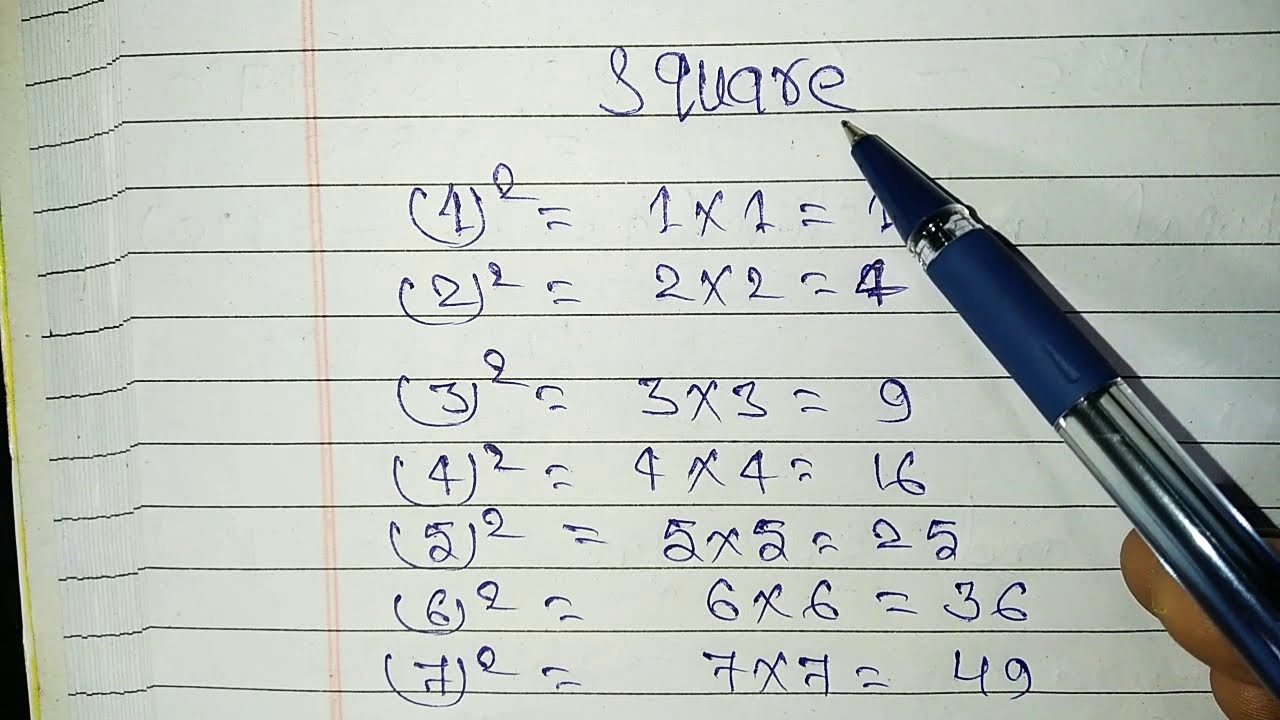 Square
(1)² = 1×1 = 1
(2)² = 2×2 = 4
(3)² = 3×3 = 9
(4)² = 4×4 = 16
(5)² = 5×5 = 25
(6)² = 6×6 = 36
(7)² = 7×7 = 49